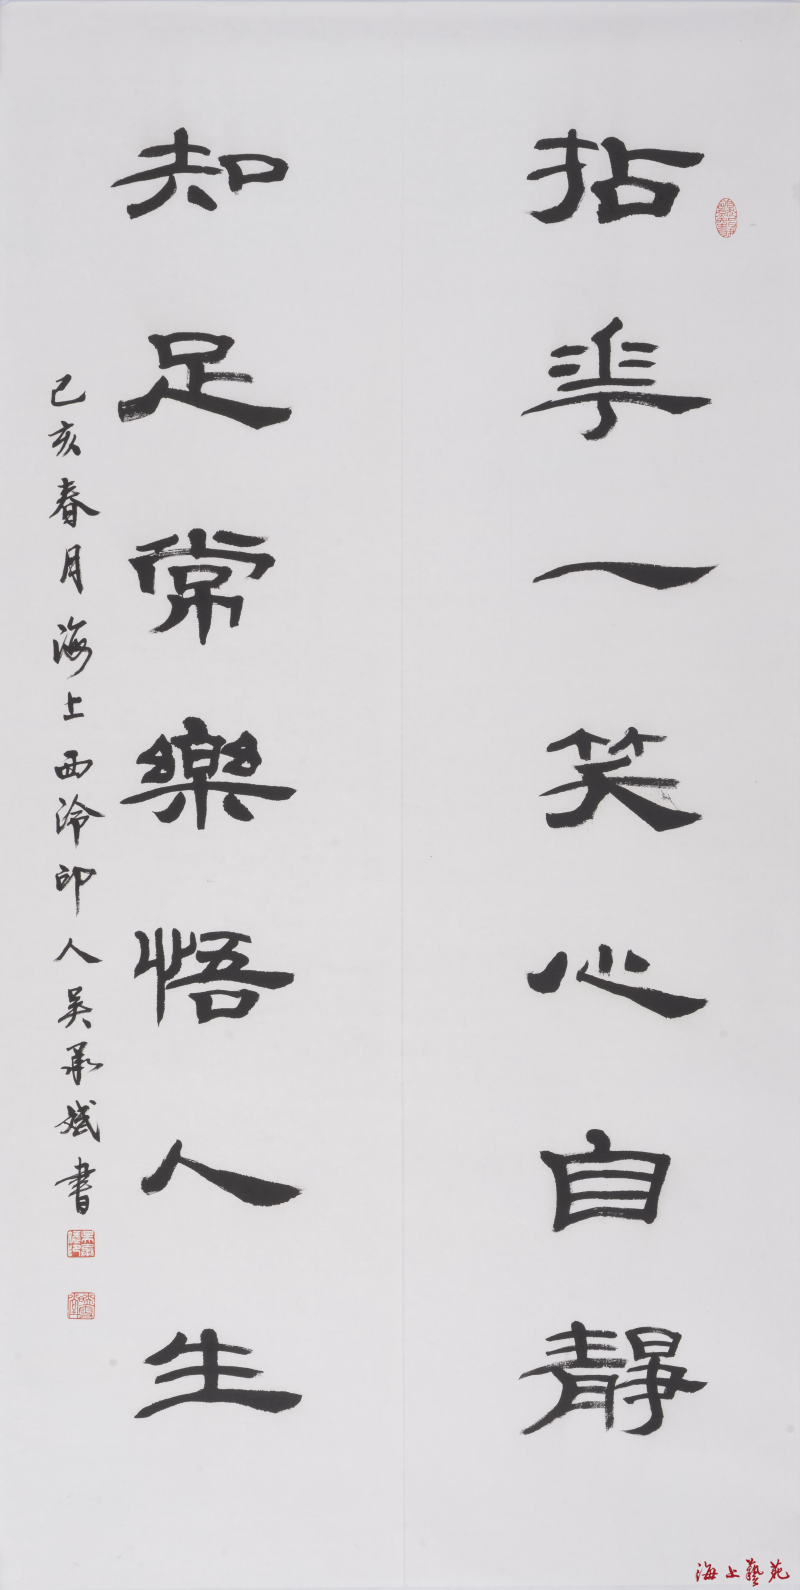 拈華一笑心自靜
知足常樂悟人生
己亥春月海上西泠印人吴承斌書
海上藝苑